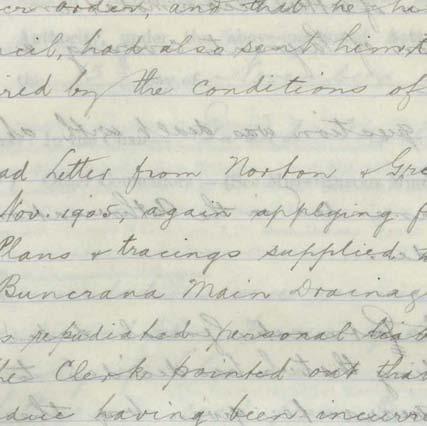 order, and that he ha
cil, had also sent him
red by the conditions of
ad Letter from Norton & Gre
Nov. 1905, again applying f
Plans & tracings supplied
Buncrana Main Drainag
s repudiated personal liab
he Clerk pointed out that
due having been incurr